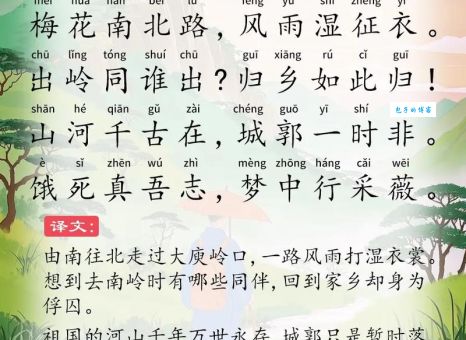 méi huā nán běi lù fēng yǔ shī zhēng yī
梅花南北路，风雨湿征衣。
chū lǐng tóng shuí chū guī xiāng rú cǐ guī
出岭同谁出？归乡如此归！
shān hé qiān gǔ zài chéng guō yī shí fēi
山河千古在，城郭一时非。
è sǐ zhēn wú zhì mèng zhōng háng cǎi wēi
饿死真吾志，梦中行采薇。
译文：
由南往北走过大庾岭口，一路风雨打湿衣裳。
想到去南岭时有哪些同伴，回到家乡却身为
俘囚。
祖国的河山千年万世永存，城郭只是暂时落